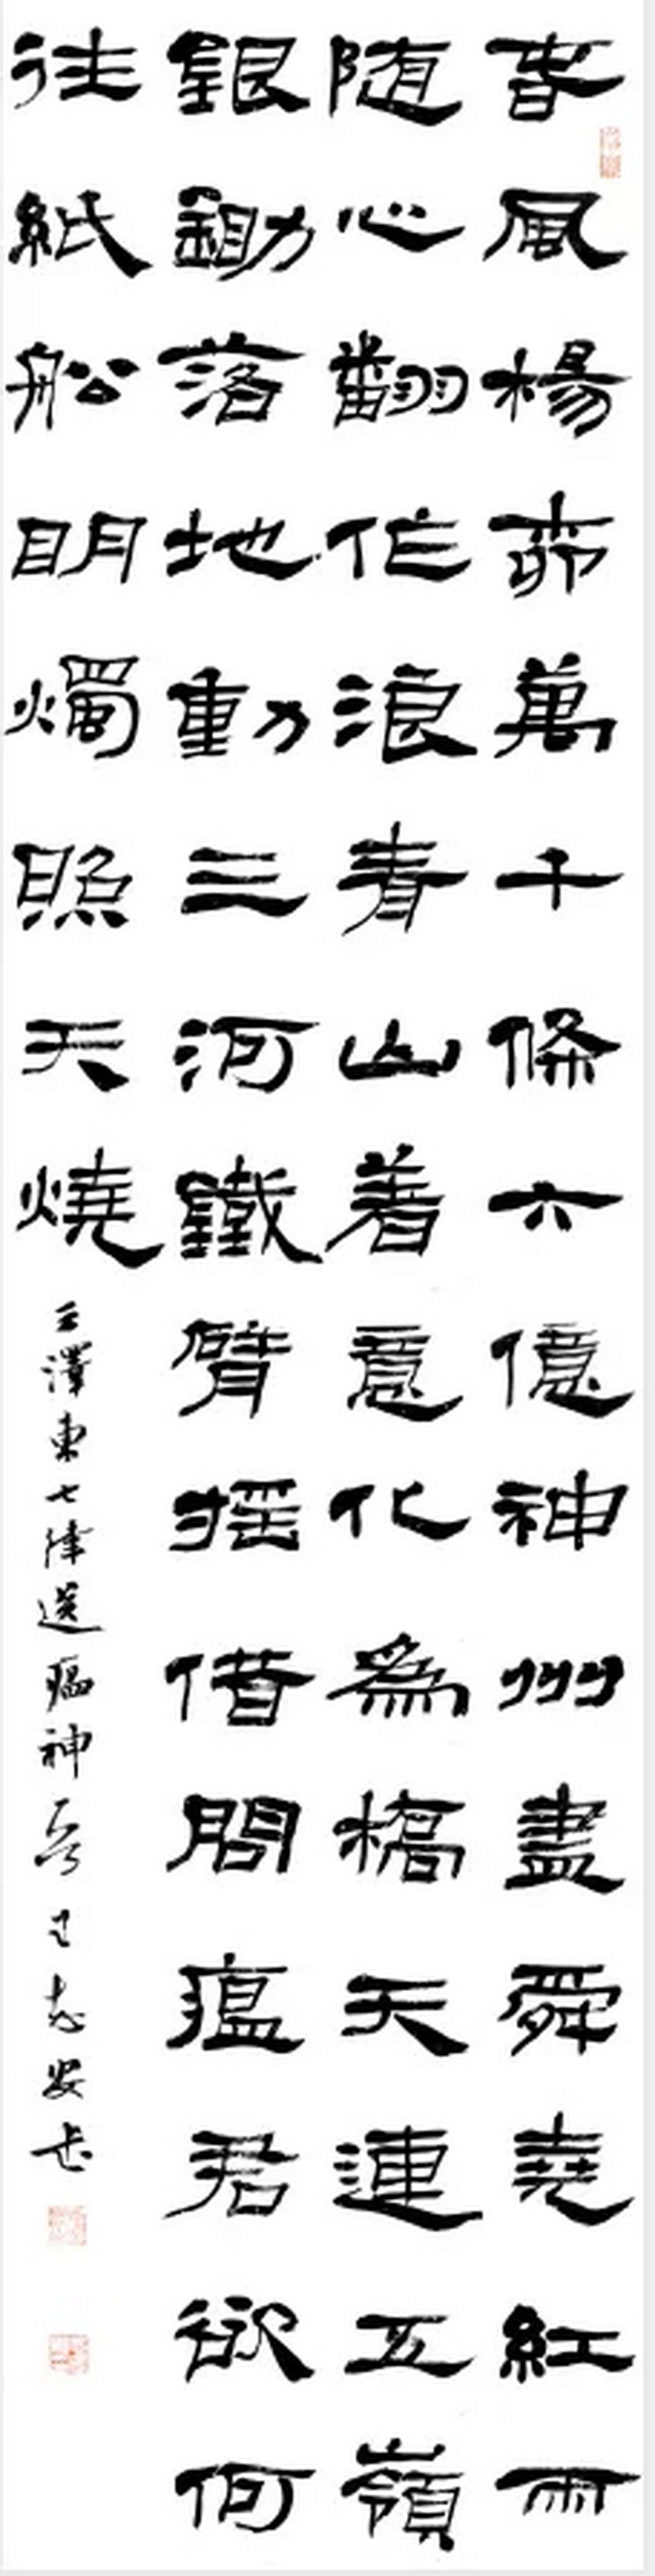 春風楊柳萬千條六億神州盡舜堯紅雨
随心翻作浪青山着意化為橋天連五嶺
銀鋤落地動三河鐵臂摇借問瘟君欲何
往紙船明燭照天燒
毛澤東七律送瘟神 王志安